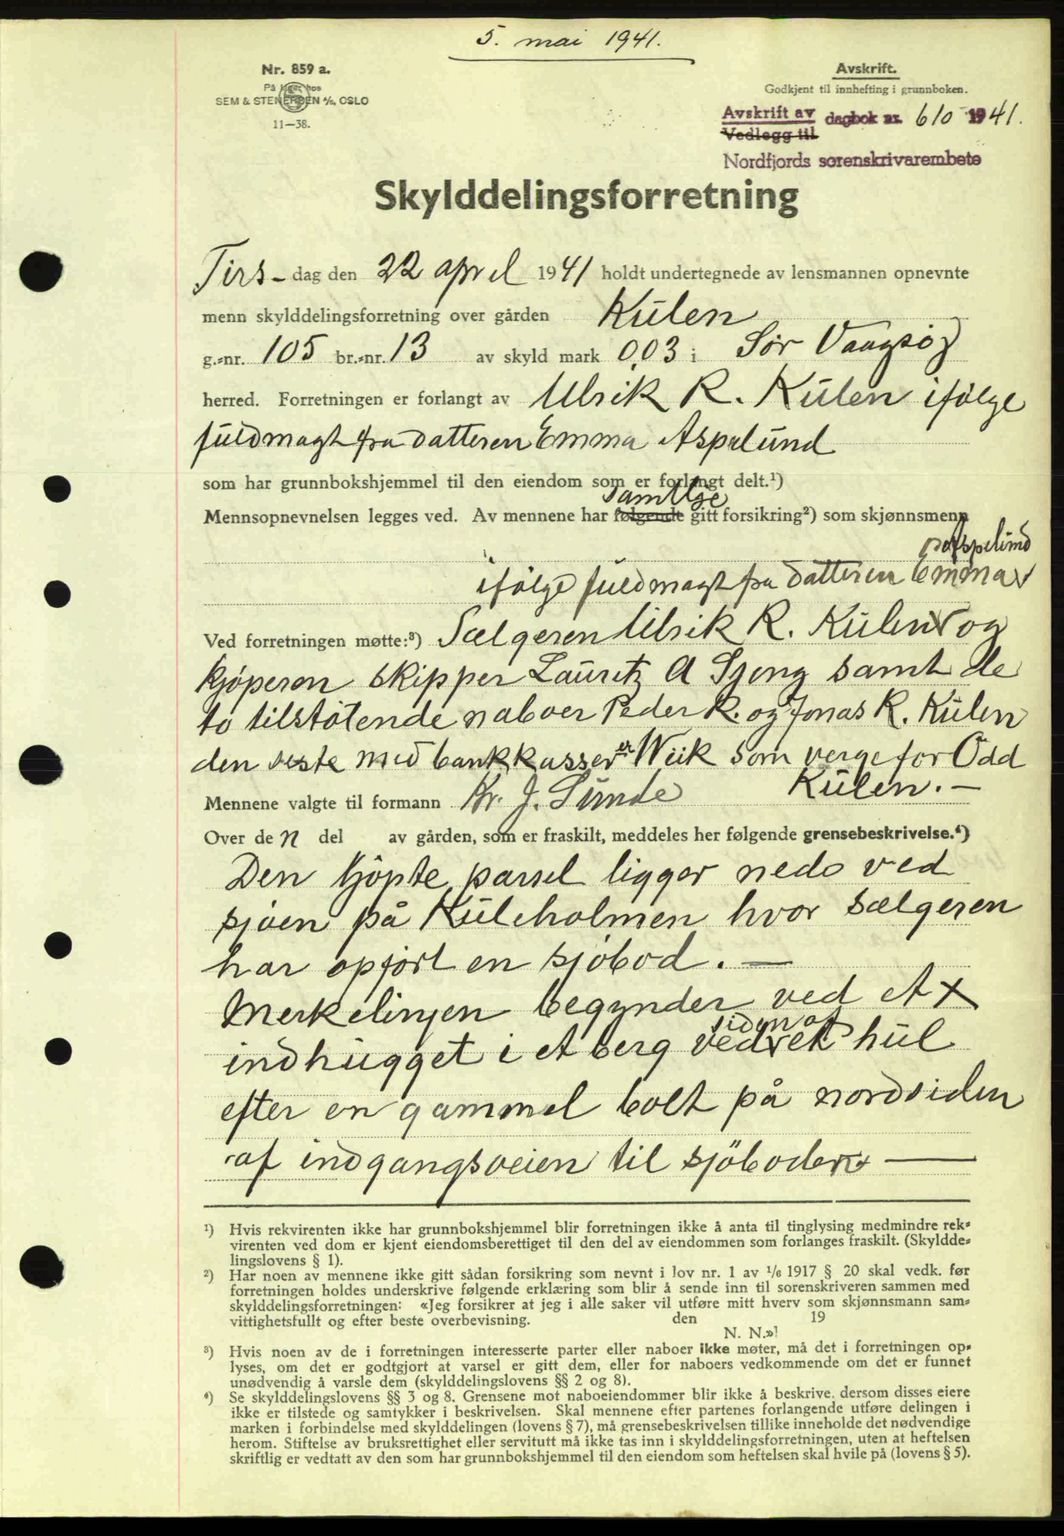 5. mai 1941.
Nr. 859 a.
På lager hos
SEM & STENERSEN A/S, OSLO
11—38.
Avskrift.
Godkjent til innhefting i grunnboken.
Avskrift av dagbok nr. 610 1941.
Vedlegg til
Nordfjords sorenskrivarembete
Skylddelingsforretning
Tirs-dag den 22 april 1941 holdt undertegnede av lensmannen opnevnte
menn skylddelingsforretning over gården Kulen
g.-nr. 105 br.-nr. 13 av skyld mark 0,03 i Sör Vaagsöy
herred. Forretningen er forlangt av Ulrik R. Kulen ifölge
fuldmagt fra datteren Emma Aspelund
som har grunnbokshjemmel til den eiendom som er forlangt delt.¹)
samtlige
Mennsopnevnelsen legges ved. Av mennene har følgende gitt forsikring²) som skjønnsmenn
Aspelund
ifölge fuldmagt fra datteren Emma
Ved forretningen møtte:³) Sælgeren Ulrik R. Kulen og
kjöperen skipper Lauritz A samt de
to tilstötende naboer Peder R. og Jonas R. Kulen
den siste med bankkasserer Wiik som verge for Odd
Kulen. —
Mennene valgte til formann Kr. J. Sunde
Over den del av gården, som er fraskilt, meddeles her følgende grensebeskrivelse.⁴)
Den kjöpte parsel ligger nede ved
sjöen på Kuleholmen hvor sælgeren
har opfört en sjöbod. —
Merkelinjen begynder ved et X
siden af
indhugget i et berg ved et hul
efter en gammel bolt på nordsiden
af indgangsveien til sjöboden —
¹) Hvis rekvirenten ikke har grunnbokshjemmel blir forretningen ikke å anta til tinglysing medmindre rek-
virenten ved dom er kjent eiendomsberettiget til den del av eiendommen som forlanges fraskilt. (Skyldde-
lingslovens § 1).
²) Har noen av mennene ikke gitt sådan forsikring som nevnt i lov nr. 1 av 1/6 1917 § 20 skal vedk. før
forretningen holdes underskrive følgende erklæring som blir å sende inn til sorenskriveren sammen med
skylddelingsforretningen: «Jeg forsikrer at jeg i alle saker vil utføre mitt hverv som skjønnsmann sam-
vittighetsfullt og efter beste overbevisning. den 19
N. N.»!
³) Hvis noen av de i forretningen interesserte parter eller naboer ikke møter, må det i forretningen op-
lyses, om det er godtgjort at varsel er gitt dem, eller for naboers vedkommende om det er funnet
unødvendig å varsle dem (skylddelingslovens §§ 2 og 8).
⁴) Se skylddelingslovens §§ 3 og 8. Grensene mot naboeiendommer blir ikke å beskrive, dersom disses eiere
ikke er tilstede og samtykker i beskrivelsen. Skal mennene efter partenes forlangende utføre delingen i
marken i forbindelse med skylddelingen (lovens § 7), må grensebeskrivelsen tillike inneholde det nødvendige
herom. Stiftelse av bruksrettighet eller servitutt må ikke tas inn i skylddelingsforretningen, uten at heftelsen
skriftlig er vedtatt av den som har grunnbokshjemmel til den eiendom som heftelsen skal hvile på (lovens § 5).